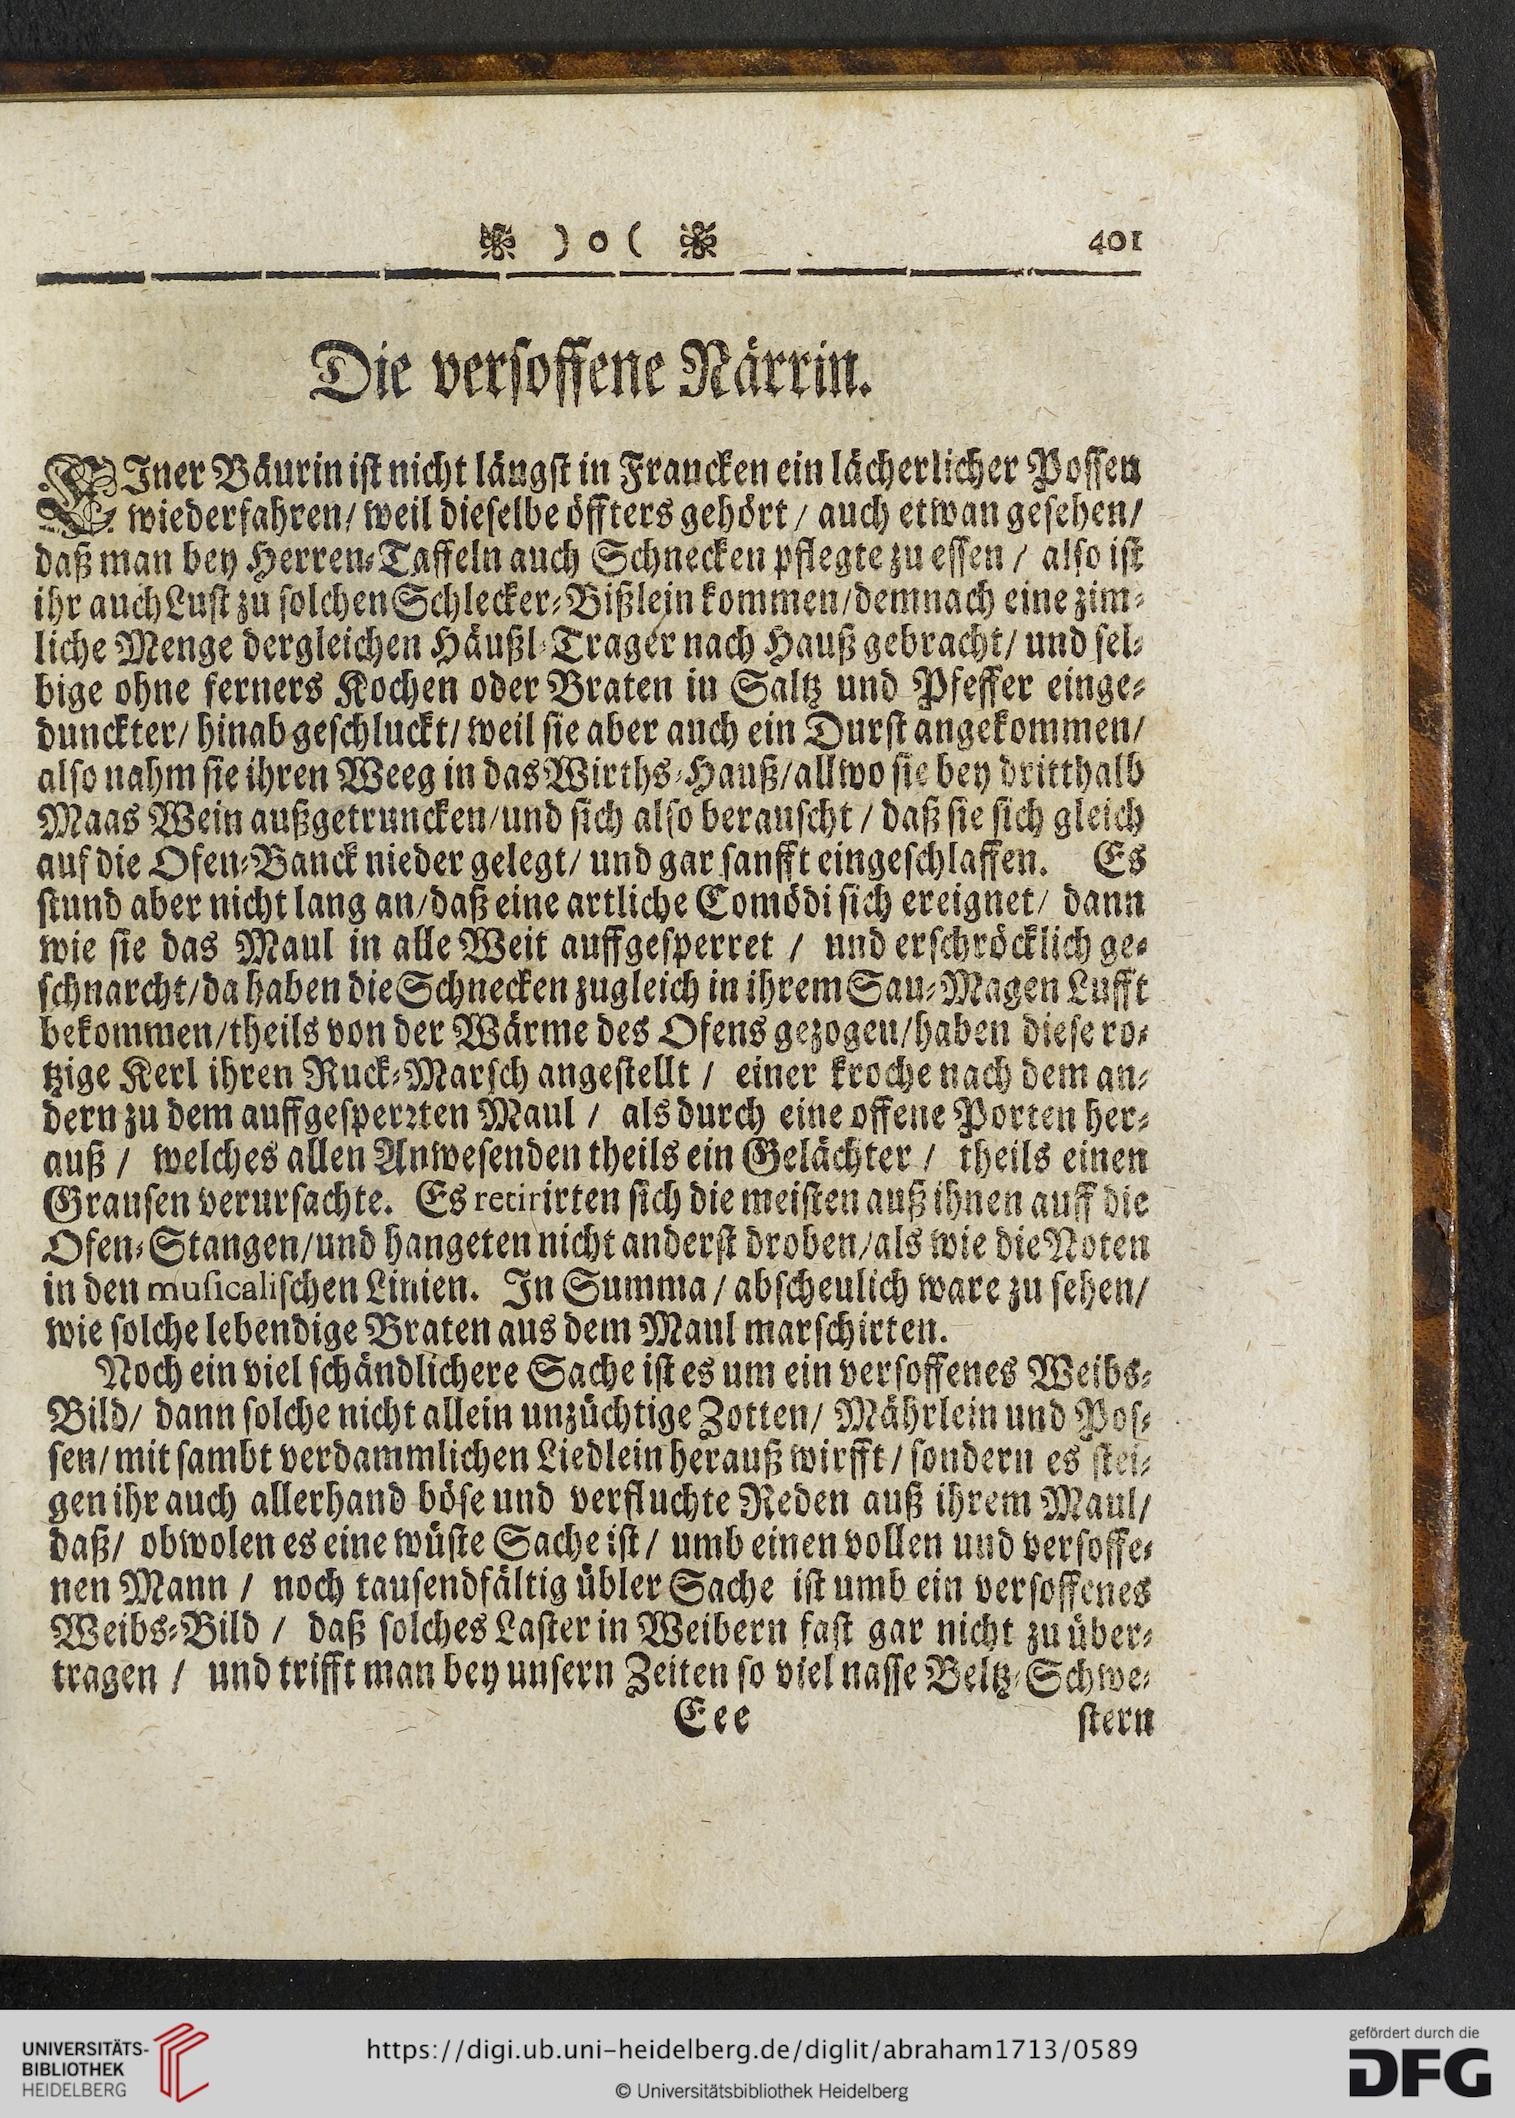 ❀ ) o ( ❀ 401
Die versoffene Närrin.
EIner Bäurin ist nicht längst in Francken ein lächerlicher Possen
wiederfahren/ weil dieselbe öffters gehört / auch etwan gesehen/
daß man bey Herren-Taffeln auch Schnecken pflegte zu essen / also ist
ihr auch Lust zu solchen Schlecker-Bißlein kommen/demnach eine zim-
liche Menge dergleichen Häußl-Trager nach Hauß gebracht/ und sel-
bige ohne ferners Kochen oder Braten in Saltz und Pfeffer einge-
dunckter/ hinab geschluckt/ weil sie aber auch ein Durst angekommen/
also nahm sie ihren Weeg in das Wirths-Hauß/allwo sie bey dritthalb
Maas Wein außgetruncken/und sich also berauscht / daß sie sich gleich
auf die Ofen-Banck nieder gelegt/ und gar sanfft eingeschlaffen. Es
stund aber nicht lang an/daß eine artliche Comödi sich ereignet/ dann
wie sie das Maul in alle Weit auffgesperret / und erschröcklich ge-
schnarcht/da haben die Schnecken zugleich in ihrem Sau-Magen Lufft
bekommen/theils von der Wärme des Ofens gezogen/haben diese ro-
tzige Kerl ihren Ruck-Marsch angestellt / einer kroche nach dem an-
dern zu dem auffgesperrten Maul / als durch eine offene Porten her-
auß / welches allen Anwesenden theils ein Gelächter / theils einen
Grausen verursachte. Es retirirten sich die meisten auß ihnen auff die
Ofen-Stangen/und hangeten nicht anderst droben/als wie die Noten
in den musicalischen Linien. In Summa / abscheulich ware zu sehen/
wie solche lebendige Braten aus dem Maul marschirten.
Noch ein viel schändlichere Sache ist es um ein versoffenes Weibs-
Bild/ dann solche nicht allein unzüchtige Zotten/ Mährlein und Pos-
sen/ mit sambt verdammlichen Liedlein herauß wirfft / sondern es stei-
gen ihr auch allerhand böse und verfluchte Reden auß ihrem Maul/
daß/ obwolen es eine wüste Sache ist / umb einen vollen und versoffe-
nen Mann / noch tausendfältig übler Sache ist umb ein versoffenes
Weibs-Bild / daß solches Laster in Weibern fast gar nicht zu über-
tragen / und trifft man bey unsern Zeiten so viel nasse Beltz-Schwe-
Eee stern
UNIVERSITÄTS-
BIBLIOTHEK
HEIDELBERG
https://digi.ub.uni-heidelberg.de/diglit/abraham1713/0589
© Universitätsbibliothek Heidelberg
gefördert durch die
DFG